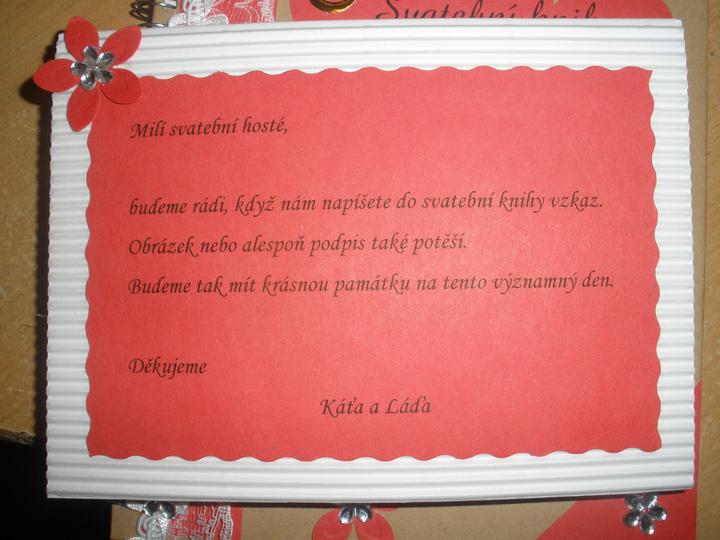 Svatební knih
Milí svatební hosté,
budeme rádi, když nám napíšete do svatební knihy vzkaz.
Obrázek nebo alespoň podpis také potěší.
Budeme tak mít krásnou památku na tento významný den.
Děkujeme
Káťa a Láďa